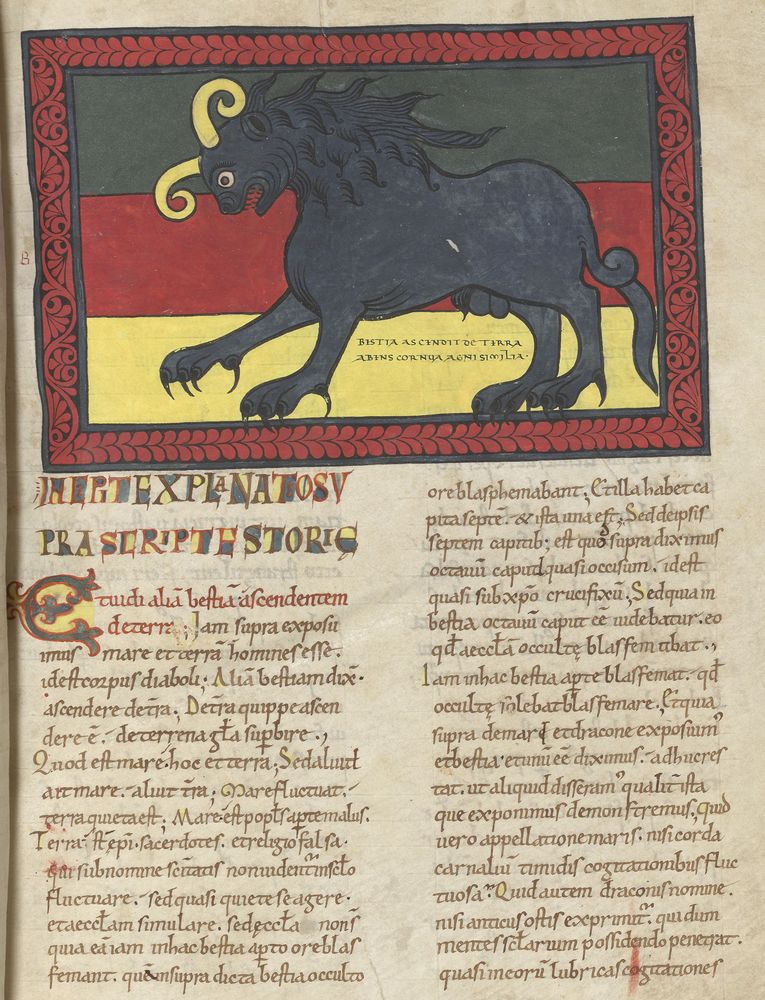 BISTIA ASCINDIT DE TIRRA
ABINS CORNUA AGNI SIMILIA·
B
INCIPIT EXPLANATIO SU
PRA SCRIPTE STORIĘ
Et uidi aliā bestiā ascendentem
de terra; Iam supra exposu
imus mare et terrā homines esse.
idest corpus diaboli; Aliā bestiam dix̄.
ascendere de t̄ra; De t̄ra quippe ascen
dere ē. de terrena gl̄a supbire.,
Quod est mare. hoc et terra; Sed aliud
ait mare. aliut t̄ra; Mare fluctuat.
terra quieta est; Mare est popl̄s apte malus.
Terra st̄ ep̄i. sacerdotes. et religio falsa.
qui sub nomine sc̄itatis non uident̄ in sc̄lo
fluctuare. sed quasi quiete se agere.
et aeccl̄am simulare. sed ęccl̄a non s̄
quia eā iam in hac bestia apto ore blas
femant. quē in supra dicta bestia occulto
ore blasphemabant; Et illa habet ca
pita septē. & ista una est; Sed de ipsis
septem capitib; est quō supra diximus
octauū caput quasi occisum. idest
quasi sub xp̄o crucifixū; Sed quia in
bestia octauū caput eē uidebatur. eo
qd̄ aeccl̄ā occultę blasfemabat.,
Iam in hac bestia apte blasfemat. qd̄
occultę solebat blasfemare; Et quia
supra de mari et dracone exposuim᾿
et bestia et unū eē diximus. adhuc res
tat. ut aliquid disseram᾿ qualit̄ ista
que exponimus demonstremus; quid
uero appellatione maris. nisi corda
carnaliū timidis cogitationibus fluc
tuosa; Quid autem draconis nomine.
nisi anticus ostis exprimit̄. qui dum
mentes scl̄arium possidendo penetrat.
quasi in eorū lubricas cogitationes